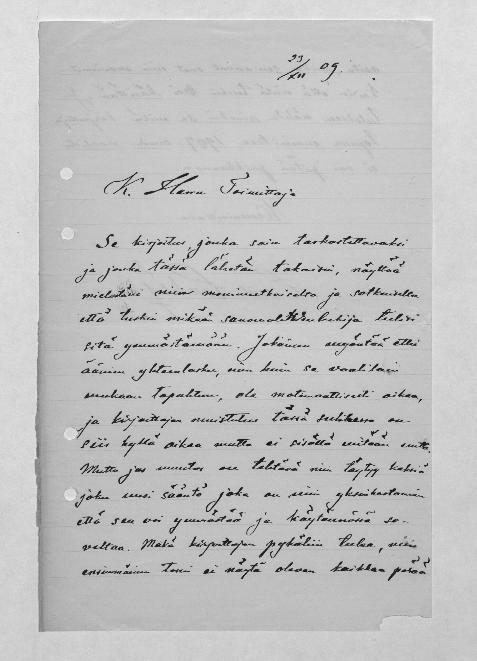 23/XII 09.
K. Herra Toimittaja
Se kirjoitus, jonka sain tarkastettavaksi
ja jonka tässä lähetän takaisin, näyttää
mielestäni niin monimutkaiselta ja sotkuiselta
että tuskin mikään sanomalehden lukija tulisi
sitä ymmärtämään. Jokainen myöntää ettei
äänien yhteenlasku, niin kuin se vaalilain
mukaan tapahtuu, ole matemaattisesti oikea,
ja kirjoittajan muistutus tässä suhteessa on
siis kyllä oikea mutta ei sisällä mitään uutta.
Mutta jos muutos on tehtävä niin täytyy keksiä
joku uusi sääntö joka on niin yksinkertainen
että sen voi ymmärtää ja käytännössä so-
veltaa. Mitä kirjoittajan pykäliin tulee, niin
ensimmäinen tosin ei näytä olevan kaikkea perää